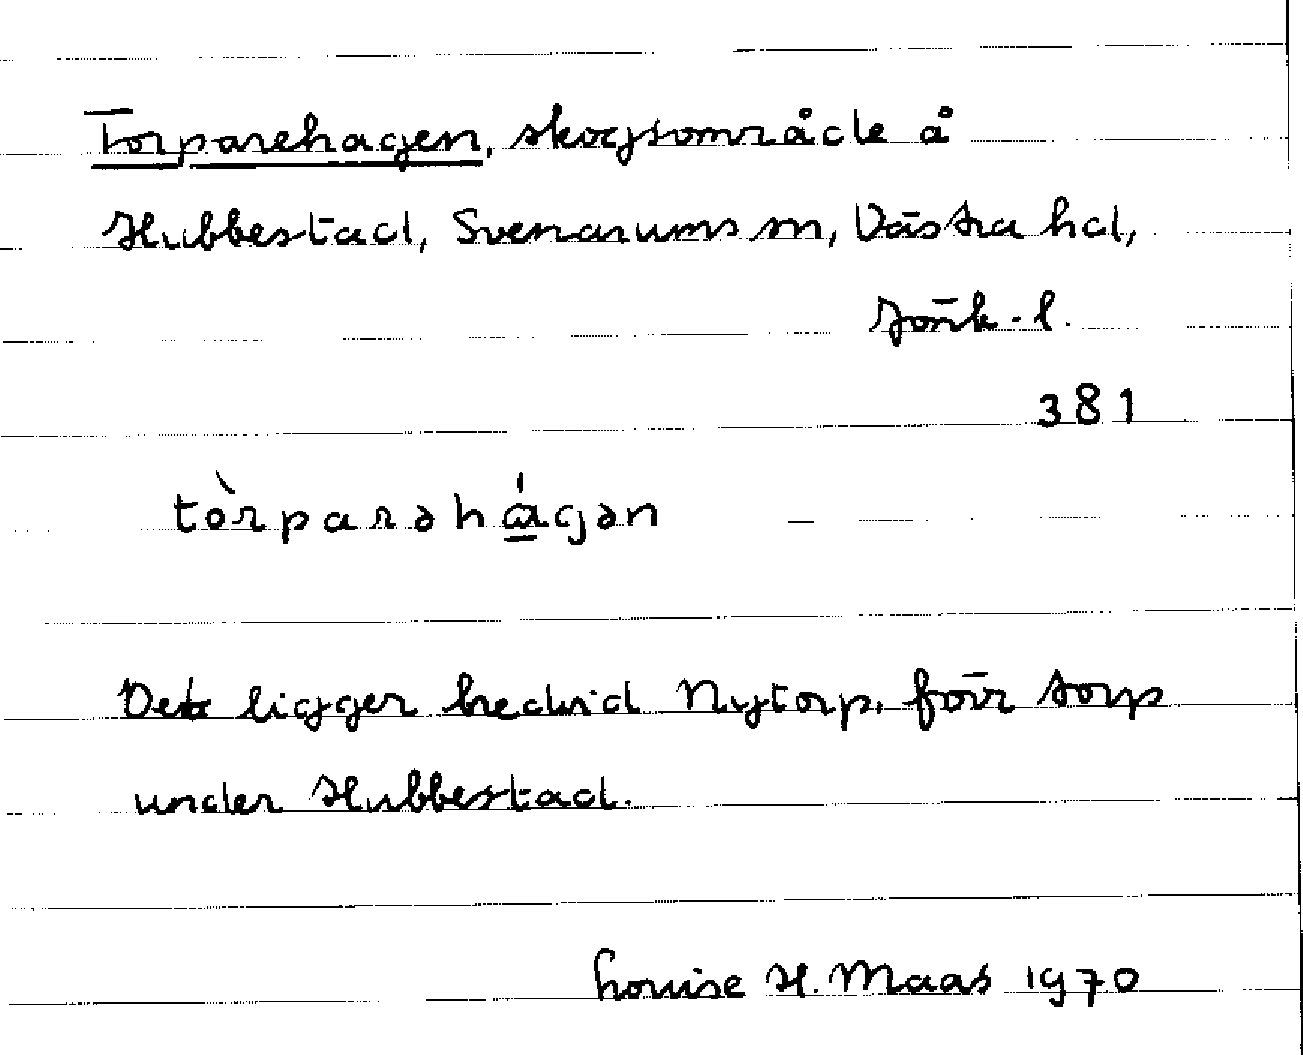 Torparehagen, skogsområde å
Hubbestad, Svenarums sn, Västra hd,
Jönk. l.
381
tòrparəhá̱gən
Det ligger bredvid Nytorp, förr torp
under Hubbestad.
Louise H. Maas 1970